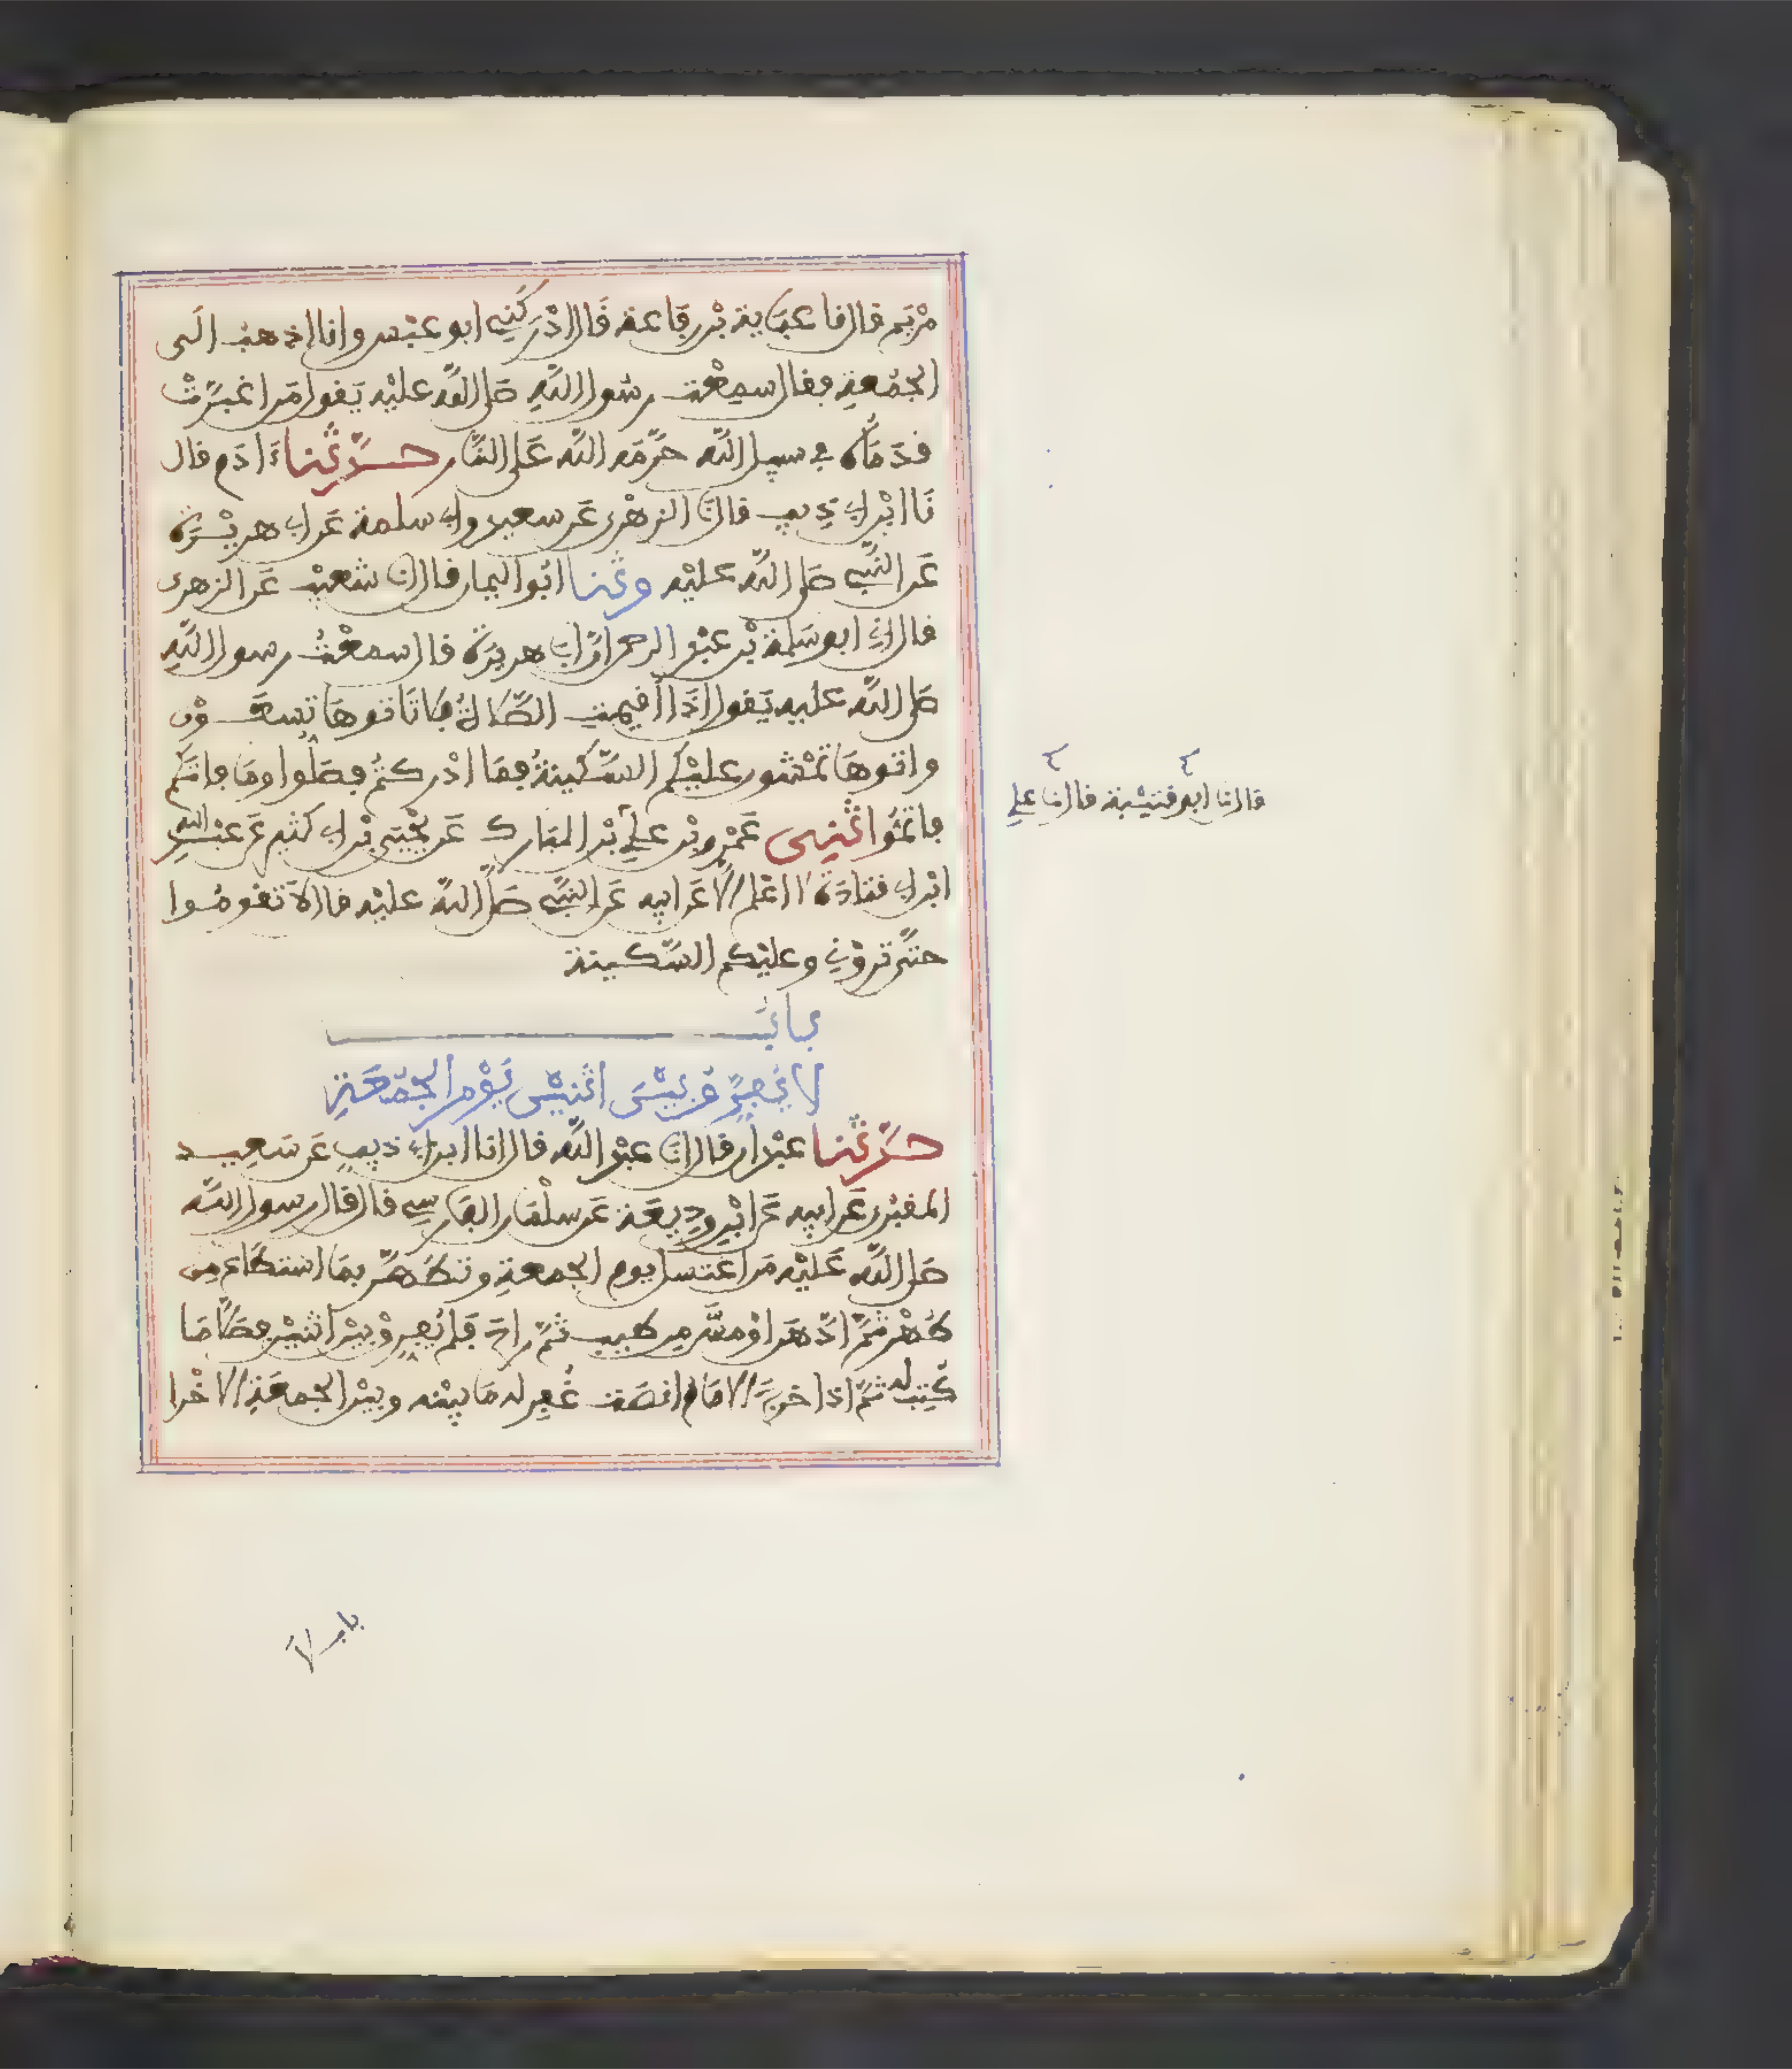 مَرْيَم قال نا عبَاية بْن رِفَاعة قَال ادْرَكَنِي ابو عبْس وانا اذهبُ الَى
الجمُعةِ فقال سمِعْت رسُول اللَّهِ صَلى اللَّه عليْه يَقول مَن اغبرَّتْ
قدَمَاه في سبيل اللَّه حَرَّمَه اللَّه عَلى النَّار حـدَّثنا ءَادَم قال
نَا ابْن ابي ذِيب قال نا الزهْرى عَن سعيد وابي سلمة عَن ابي هريْرَة
عَن النَّبِي صَلى اللَّه عليْه وثنا ابُو اليمان قال انا شعيْب عَن الزهرى
قال اني ابو سَلمة بْن عبْد الرحمن انَّ ابَا هريرَة قال سمعْتُ رسول اللَّهِ
صَلى اللَّه عليه يَقول اذَا أقيمتِ الصَّلاةُ فلا تَاتوهَا تَسعَـوْن
واتوهَا تمْشون عليْكم السَّكينةُ فمَا ادْركتُمْ فصَلُّوا ومَا فاتَكم
فاتمُّوا ثنِـى عَمْرو بْن علي بْن المبَارك عَن يحْيَى بْن ابي كثير عَن عبْد اللهِ
ابْن ابي قتادَة لا اعْلمه الا عَن ابيه عَن النَّبِي صَلى اللَّه عليْه قال لاَ تَقومُوا
حتَّى ترَوْنِي وعليْكم السَّكينة
بابٌ
لا يُفَرِّقُ بيْنَ اثنيْن يَوْم الجمُعَةِ
حـدَّثنا عبْدان قال انا عبْد اللَّه قال انا ابن ابي ذيب عَن سَعِيـد
المقبُرى عَن ابيه عَن ابْن وديعَة عَن سلْمَان الفَارسِي قال قال رسول اللَّه
صَلى اللَّه عَليْه مَن اغتسل يوم الجمعةِ وتطَهَّر بمَا استطَاع من
طُهْر ثمَّ ادَّهَن اوْ مسَّ من طيب ثمَّ راح فَلم يُفرِّقْ بيْن اثنيْن فصَلَّى مَا
كُتِبَ له ثمَّ اذا خرجَ الامَام انصَت غُفِر له مَا بيْنه وبيْن الجمعَةِ الاخْرا
قال نا ابو قتيْبة قال نا علي
باب لا